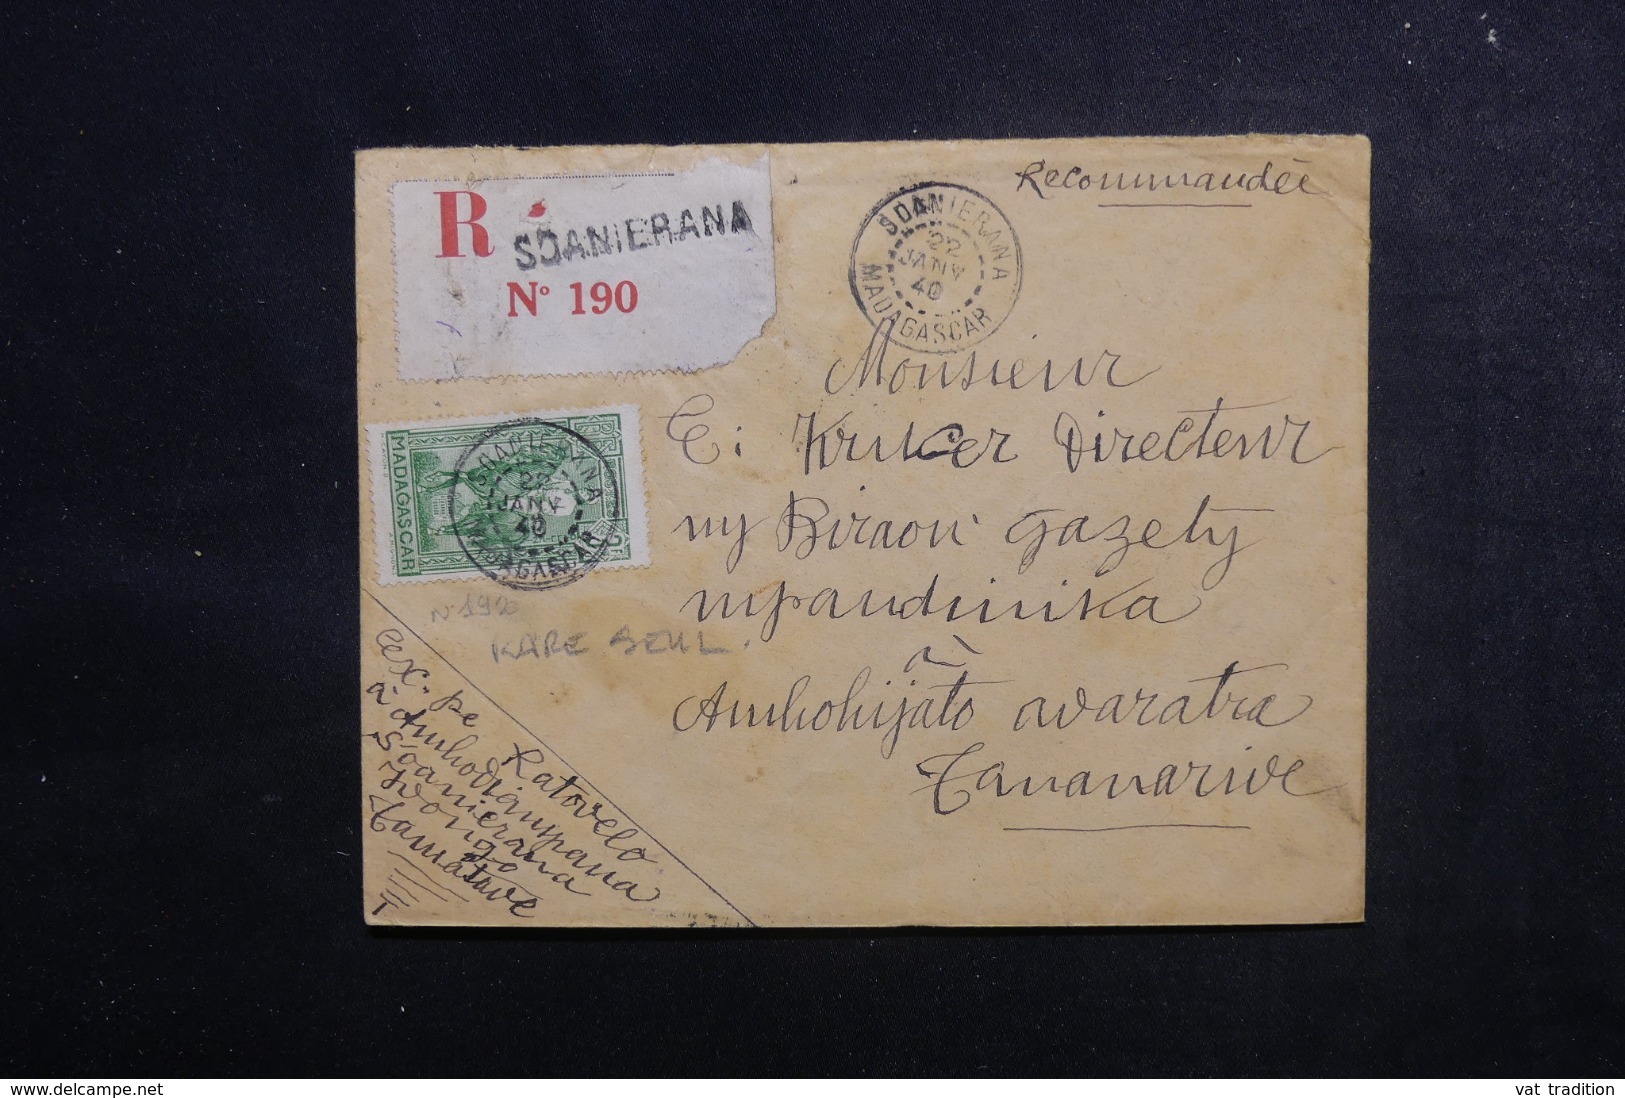 Recommandée
R
SOANIERANA
N° 190
SOANIERANA
22
JANV
40
MADAGASCAR
MADAGASCAR
SOANIERANA
22
JANV
40
MADAGASCAR
Monsieur
E: Kruker Directeur
ny Biraon' gazety
mpandinika
à
Ambohijato avaratra
Tananarive
N°192
RARE SEUL.
Ratovelo
à Ambodiampana
Soanierana
Ivongo
Tamatave
www.delcampe.net
vat tradition